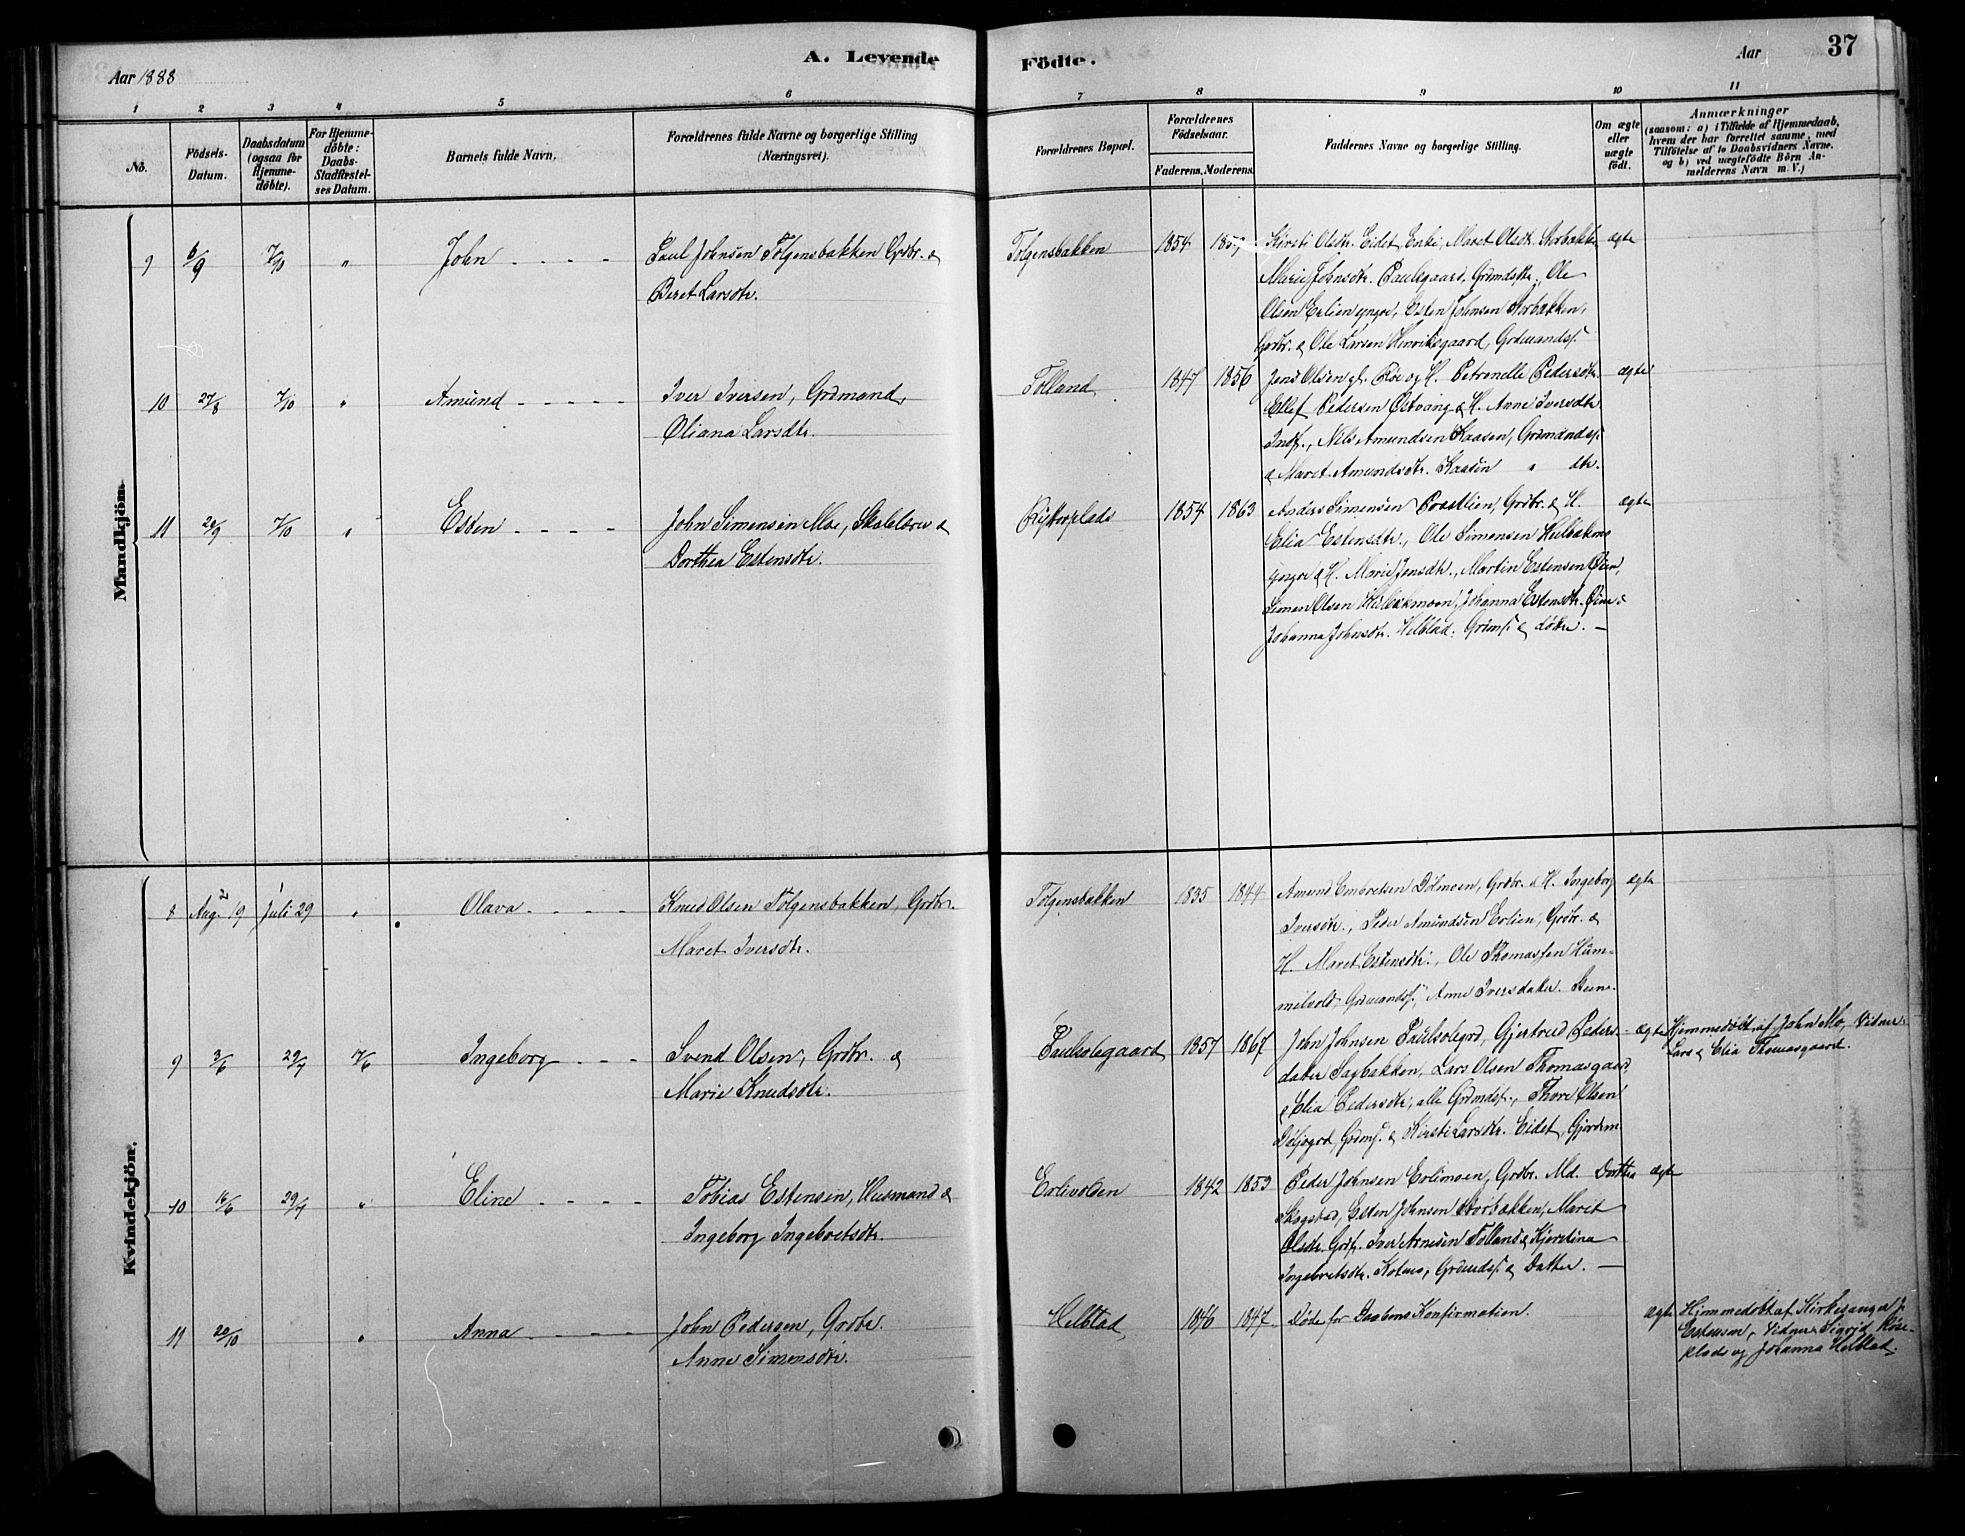 Aar 1888
A. Levende
Födte.
Aar
37
1 2 3 4 5 6 7 8 9 10 11
No.
Födsels-
Datum.
Daabsdatum
(ogsaa for
Hjemme-
døbte).
For Hjemme-
døbte:
Daabs-
Stadfæstel-
ses Datum.
Barnets fulde Navn.
Forældrenes fulde Navne og borgerlige Stilling
(Næringsvei).
Forældrenes Bopæl.
Forældrenes
Födselsaar.
Faderens. Moderens.
Faddernes Navne og borgerlige Stilling.
Om ægte
eller
uægte
født.
Anmærkninger
(saasom: a) i Tilfælde af Hjemmedaab,
hvem der har forrettet samme, med
Tilföielse af to Daabsvidners Navne,
og b) ved uægtefödte Börn An-
melderens Navn m. V.)
Mandkjön
9 6/9 7/10 " John - - - -
Paul Johnsen Tolgensbakken Grdbr. &
Beret Larsdtr.
Tolgensbakken 1854
Kirsti Olsdtr. Eidet, Enke, Maret Olsdtr. Storbakken ægte
Marie Johnsdtr. Paulsgaard, Grdmdsdtr., Ole
Olsen Erlien yngre, Esten Johnsen Storbakken,
Grdbr. & Ole Larsen Henriksgaard, Grdmandss.
10 27/8 7/10 " Amund - - - - -
Iver Iversen, Grdmand,
Oliana Larsdtr.
Tolland 1847 1856
Jens Olsen gl. Røe og H. Petronelle Pedersdtr. ægte
Ellef Pedersen Østvang & H. Anne Iversdtr.
Inds., Nils Amundsen Kaasen, Grdmandss.
& Maret Amundsdtr. Kaasen " dtr.
11 20/9 7/10 " Esten - - - -
John Simensen Moe, Skolelærer &
Dorthea Estensdtr.
1854 1863
Anders Simensen Grdbr. & H. ægte
Elia Estensdtr., Ole Simensen
yngre & H. Marie Jonsdtr., Martin Estensen Øien,
Simen Olsen Johanna Estensdtr. Øien &
Johanna Johnsdtr. Helstad. Grdms. & døtre. —
Kvindekjön.
8 Aug. 19 Juli 29 " Olava - - - -
Knud Olsen Tolgensbakken, Grdbr.
Maret Iversdtr.
Tolgensbakken 1835 1844
Amund Embretsen Dølmoen, Grdbr. & H. Ingeborg ægte
Iversdtr., Peder Amundsen Erlien, Grdbr. &
H. Maret Estensdtr., Ole Thomassen Hum-
melvold, Grdmandss., Anne Iversdatter
9 3/6 29/7 17/6 Ingeborg - - -
Svend Olsen, Grdbr. &
Marie Knudsdtr.
Paulsolegaard 1857 1867
John Johnsen Paulsolegrd, Gjertrud Peders- ægte
datter Sagbakken, Lars Olsen Thomasgaard
& Elia Pedersdtr., alle Grdmdsf., Thore Olsen
& Kirsti Larsdtr. Eidet,
Hjemmedøbt af John Mo, Vidner
Lars & Elia Thomasgaard.
10 16/6 29/7 " Eline - - - -
Tobias Estensen, Husmand &
Ingeborg Ingebretsdtr.
Erlivolden 1842 1853
Peder Johnsen Erlimoen, Grdbr. Md. Dorthea ægte
Skogstad, Esten Johnsen Storbakken, Maret
Olsdtr. Grdf. Iver Arnesen Tolland & Kjerstina
Ingebretsdtr. Kotmo, Grdmdss. & Datter. —
11 20/10 " Anna - - - -
John Pedersen, Grdbr.
Anne Simensdtr.
Helstad 1846 1847
Døde før Daabens Konfirmation ægte
Hjemmedøbt af Kirkesanger J.
Estensen, Vidner Sigrid Røse-
plads og Johanna Helstad.